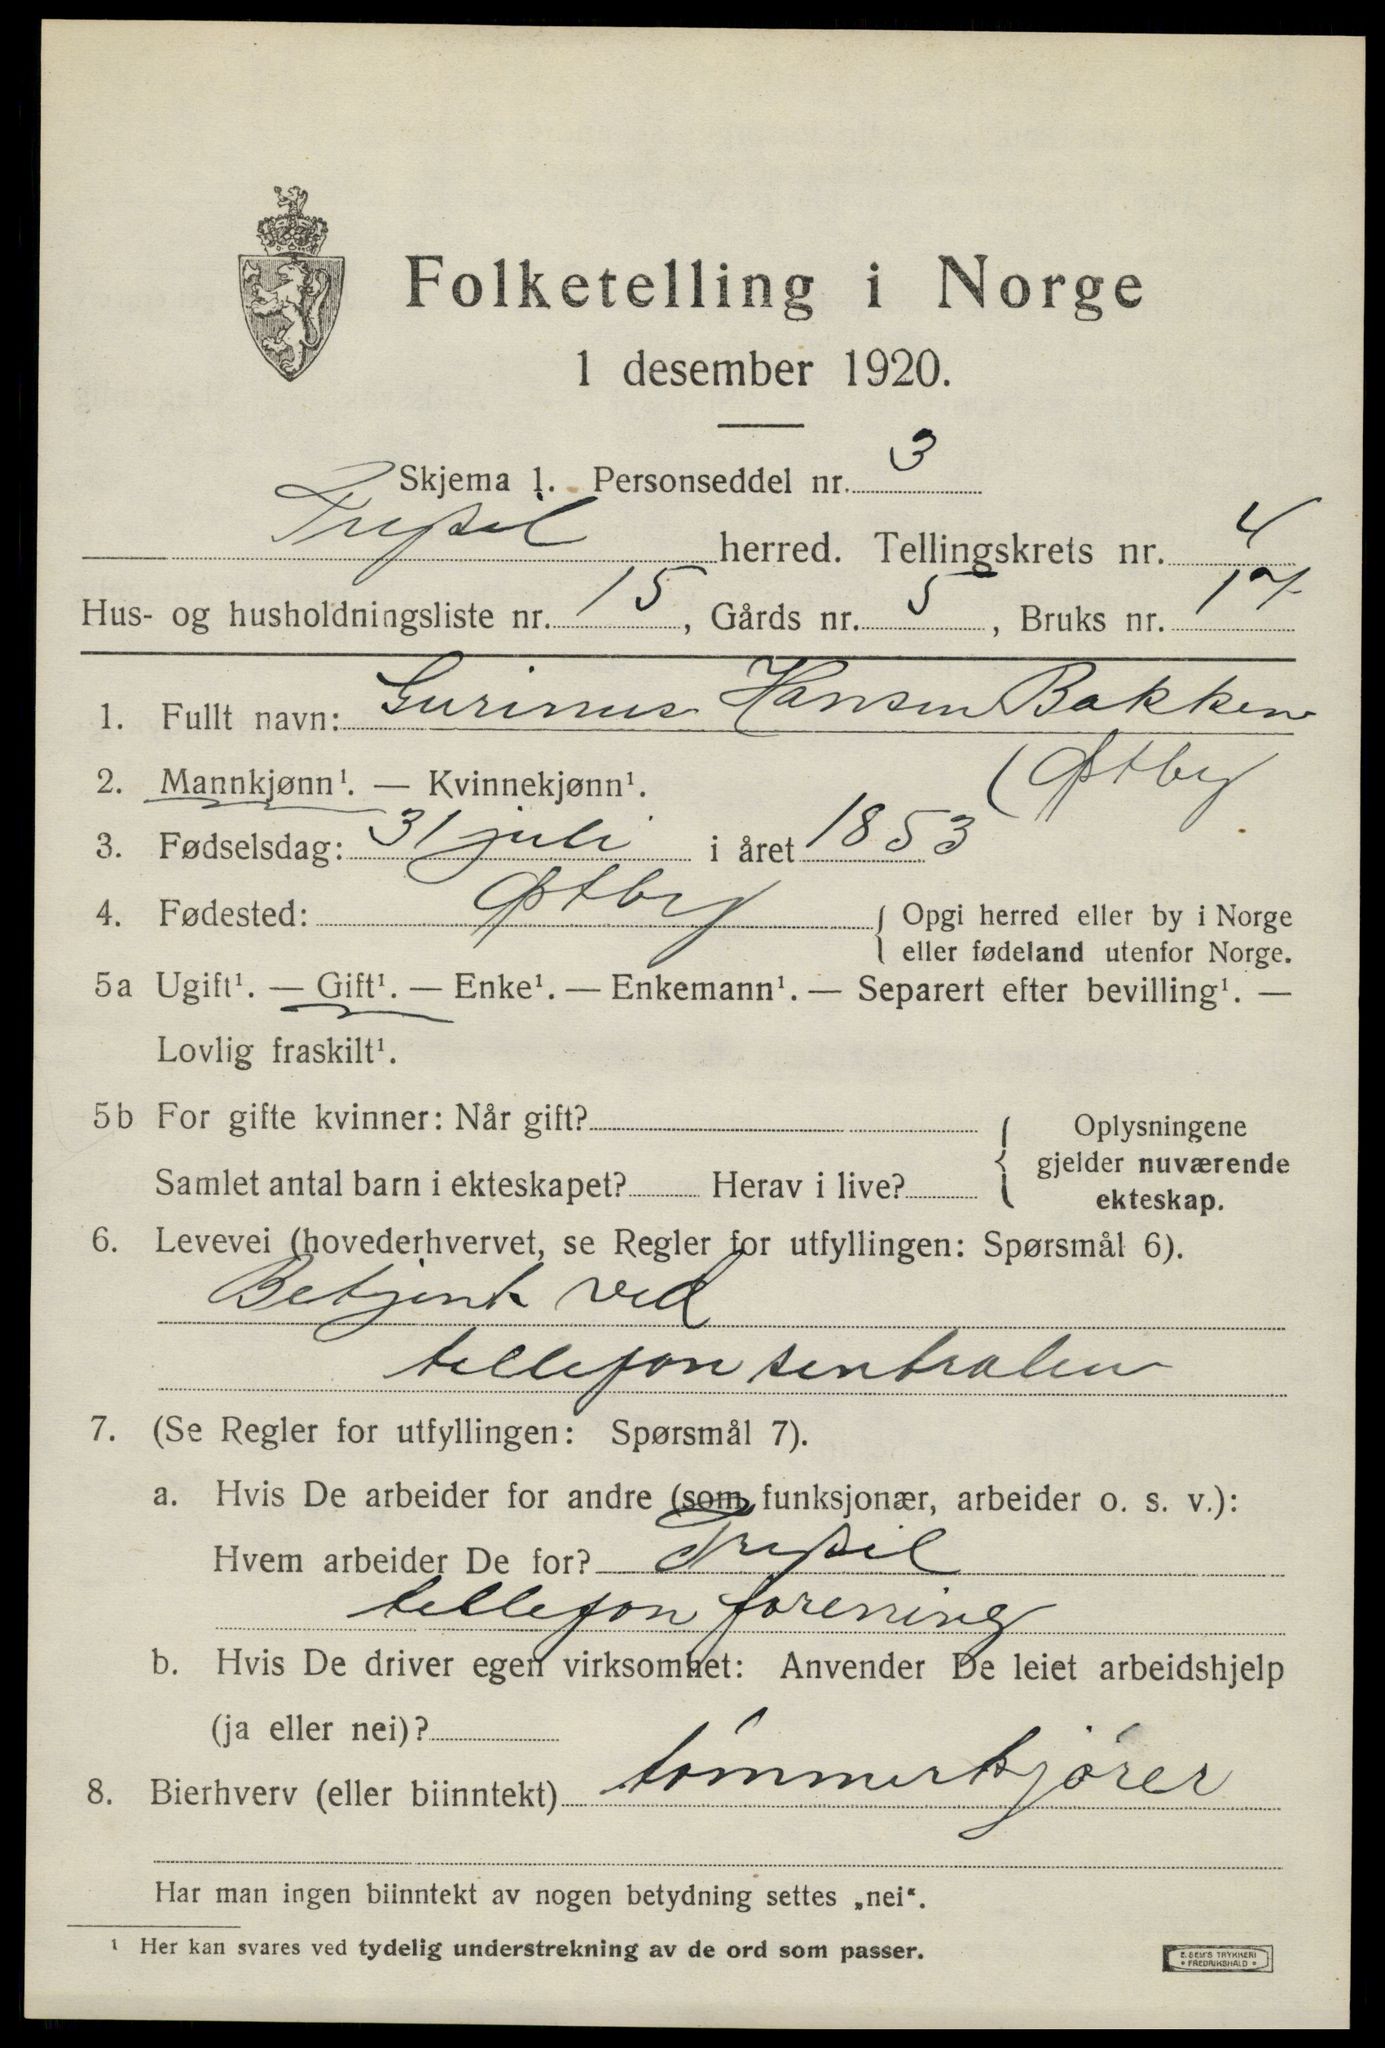 Folketelling i Norge
1 desember 1920.
Skjema 1. Personseddel nr. 3
Trysil herred. Tellingskrets nr. 4
Hus- og husholdningsliste nr. 15, Gårds nr. 5, Bruks nr. 17
1. Fullt navn: Gurinus Hansen Bakken
(Østby
2. Mannkjønn¹. — Kvinnekjønn¹.
3. Fødselsdag: 31 juli i året 1853
4. Fødested: Østby { Opgi herred eller by i Norge
eller fødeland utenfor Norge.
5a Ugift¹. — Gift¹. — Enke¹. — Enkemann¹. — Separert efter bevilling¹. —
Lovlig fraskilt¹.
5b For gifte kvinner: Når gift? { Oplysningene
gjelder nuværende
Samlet antal barn i ekteskapet? Herav i live? ekteskap.
6. Levevei (hovederhvervet, se Regler for utfyllingen: Spørsmål 6).
Betjent ved
tellefon sentralen
7. (Se Regler for utfyllingen: Spørsmål 7).
a. Hvis De arbeider for andre (som funksjonær, arbeider o. s. v.):
Hvem arbeider De for? Trysil
tellefon forening
b. Hvis De driver egen virksomhet: Anvender De leiet arbeidshjelp
(ja eller nei)?
8. Bierhverv (eller biinntekt) tømmerkjører
Har man ingen biinntekt av nogen betydning settes „nei".
¹ Her kan svares ved tydelig understrekning av de ord som passer.
E. SEM'S TRYKKERI
• FREDRIKSHALD •